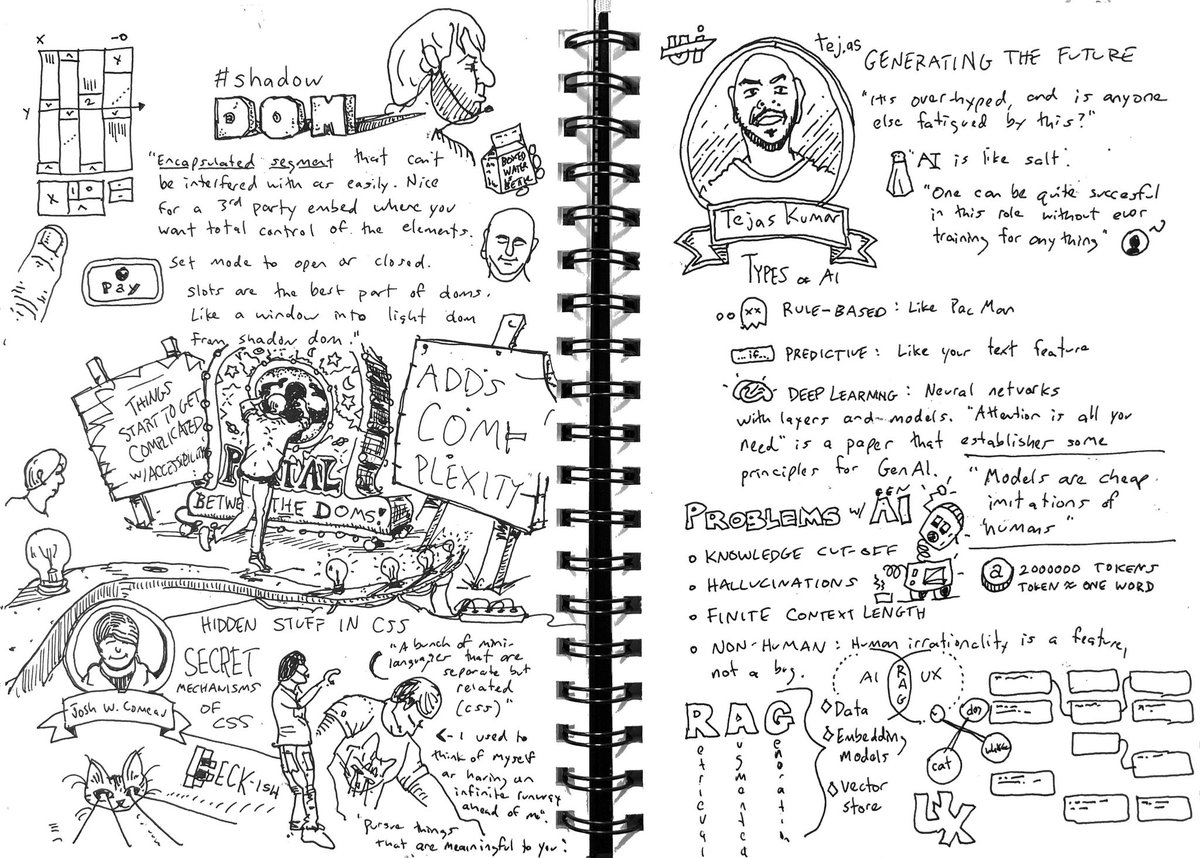 #shadow
DOM
"Encapsulated segment that can't
be interfered with as easily. Nice
for a 3rd party embed where you
want total control of the elements.
BOXED
WATER
IS
BETTER
Set mode to open or closed.
pay
slots are the best part of doms.
Like a window into light dom
from shadow dom."
THINGS
START TO GET
COMPLICATED
W/ACCESSIBILITY
PORTAL
BETWEEN THE DOMS
ADDS
COM-
PLEXITY
HIDDEN STUFF IN CSS
SECRET
MECHANISMS
OF
CSS
Josh W. Comeau
"A bunch of mini-
languages that are
separate but
related
(CSS)"
BECK-ISH
<- I used to
think of myself
as having an
infinite runway
ahead of me".
"Pursue things
that are meaningful to you!
tej.as
GENERATING THE FUTURE
Tejas Kumar
"It's over-hyped, and is anyone
else fatigued by this?"
"AI is like salt".
"One can be quite succesful
in this role without ever
training for anything"
TYPES OF AI
RULE-BASED: Like Pac Man
...if... PREDICTIVE: Like your text feature
DEEP LEARNING: Neural networks
with layers and models. "Attention is all you
need" is a paper that establisher some
principles for GenAI.
"Models are cheap
imitations of
humans"
PROBLEMS w/ GEN AI
KNOWLEDGE CUT-OFF
HALLUCINATIONS
FINITE CONTEXT LENGTH
2000000 TOKENS
TOKEN ≈ ONE WORD
NON-HUMAN: Human irrationality is a feature,
not a bug.
AI RAG UX
RAG
Retrieval
Augmented
Generation
Data
Embedding
Models
Vector
store
dog
cat
UX